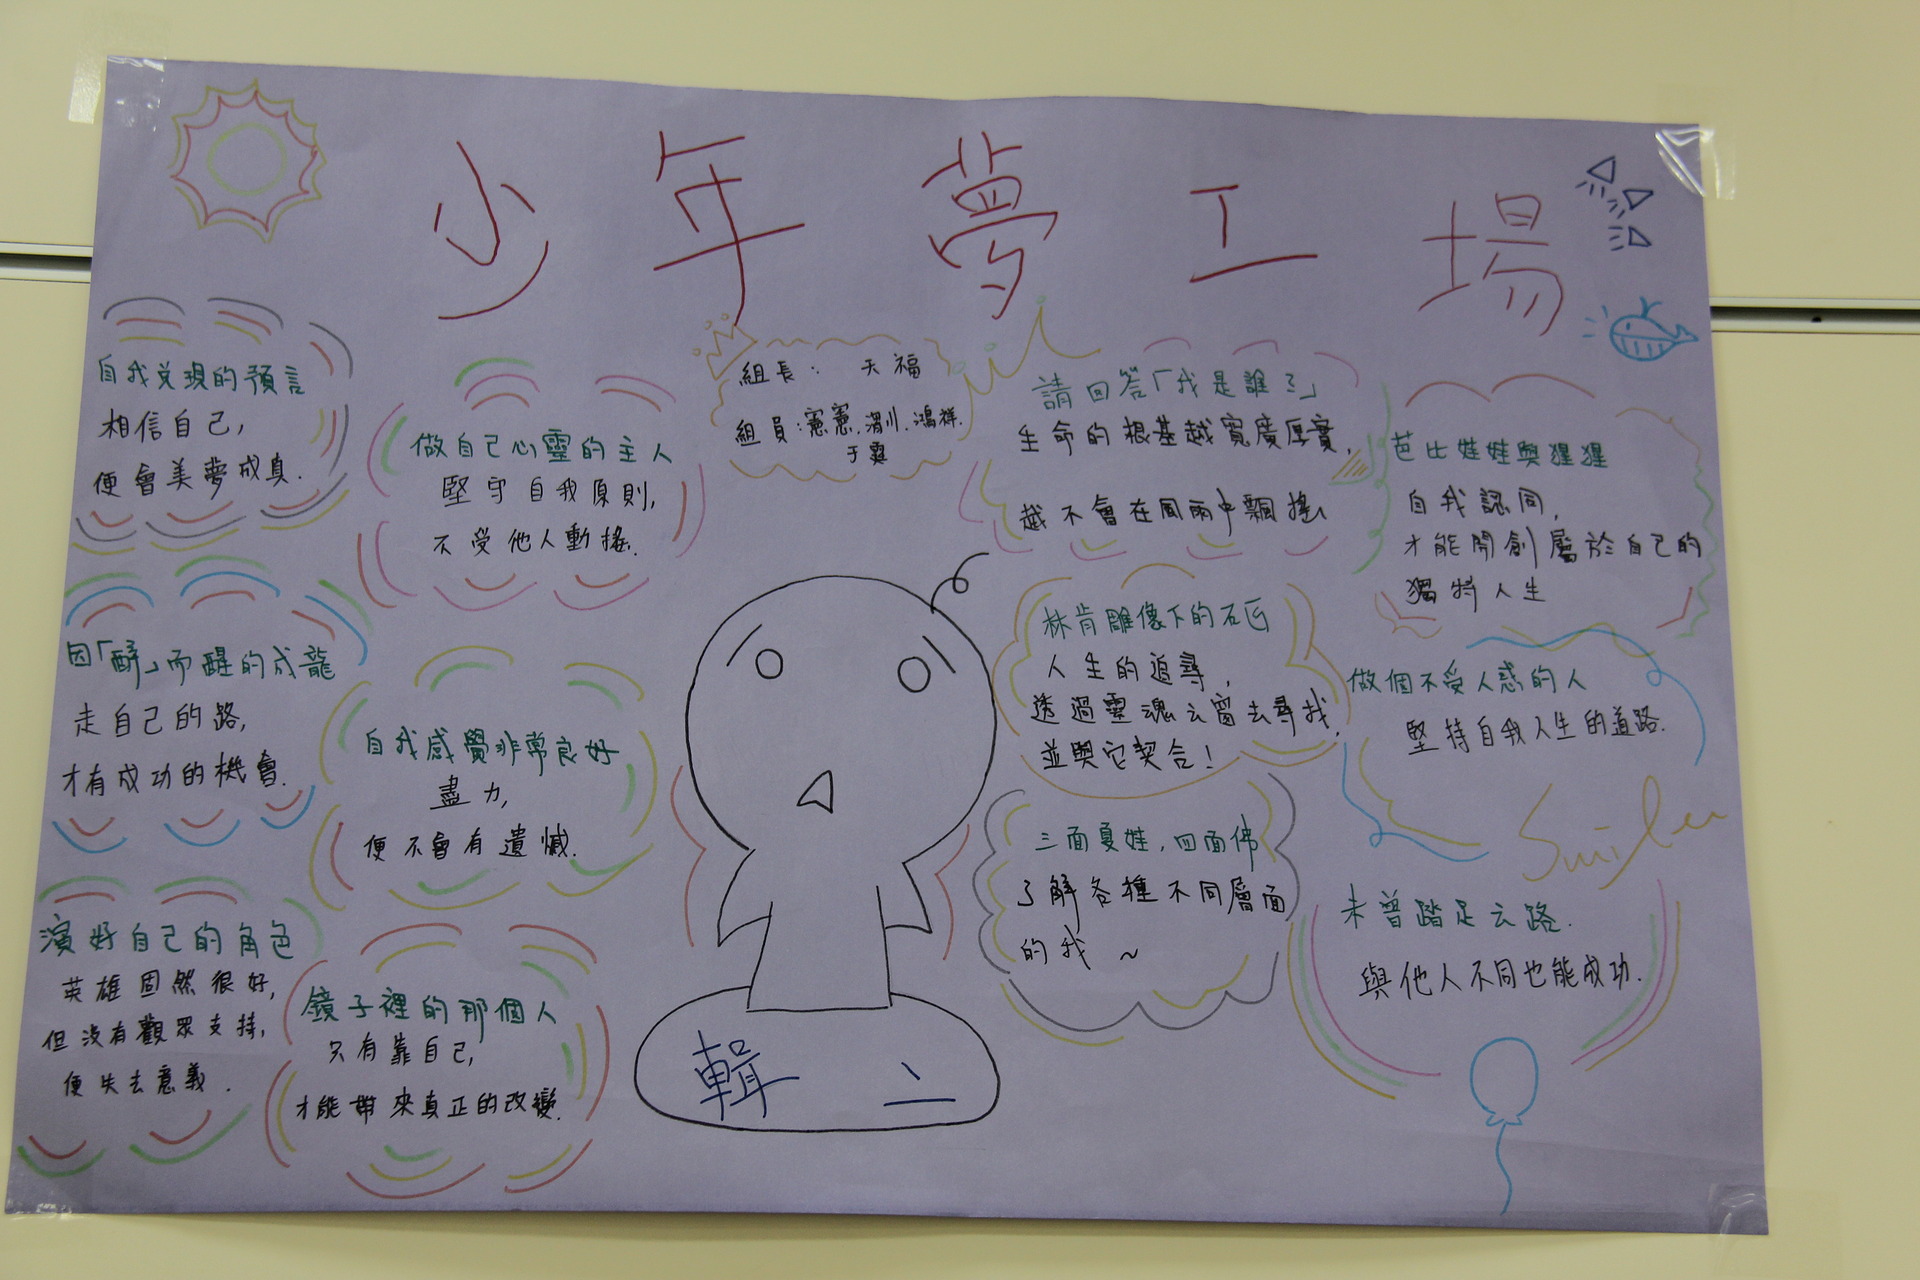 少年夢工場
自我兌現的預言
相信自己,
便會美夢成真.
做自己心靈的主人
堅守自我原則,
不受他人動搖.
組長: 天福
組員:憲憲.渭川.鴻祥.
于霙
請回答「我是誰?」
生命的根基越寬廣厚實,
越不會在風雨中飄搖
芭比娃娃與猩猩
自我認同,
才能開創屬於自己的
獨特人生
因「醉」而醒的成龍
走自己的路,
才有成功的機會.
自我感覺非常良好
盡力,
便不會有遺憾.
林肯雕像下的石匠
人生的追尋,
透過靈魂之窗去尋找,
並與它契合!
做個不受人惑的人
堅持自我人生的道路.
Smile
三面夏娃,四面佛
了解各種不同層面
的我 ~
未曾踏足之路.
與他人不同也能成功.
演好自己的角色
英雄固然很好,
但沒有觀眾支持,
便失去意義.
鏡子裡的那個人
只有靠自己,
才能帶來真正的改變.
輯二